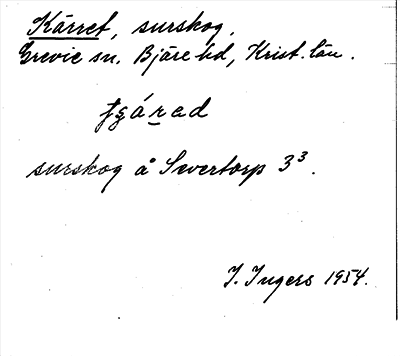 Kärret, surskog.
Grevie sn. Bjäre hd, Krist. län.
surskog å Svertorp 3³.
I. Ingers 1954.